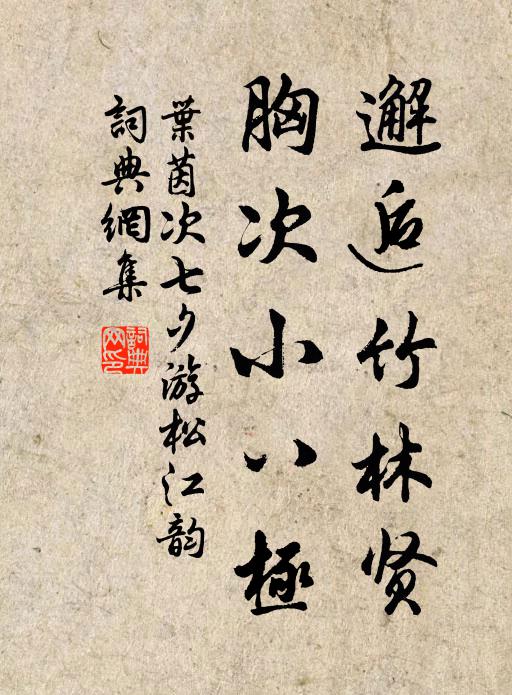 邂逅竹林贤
胸次小八極
葉茵次七夕游松江韵
詞典網集
詞典网印